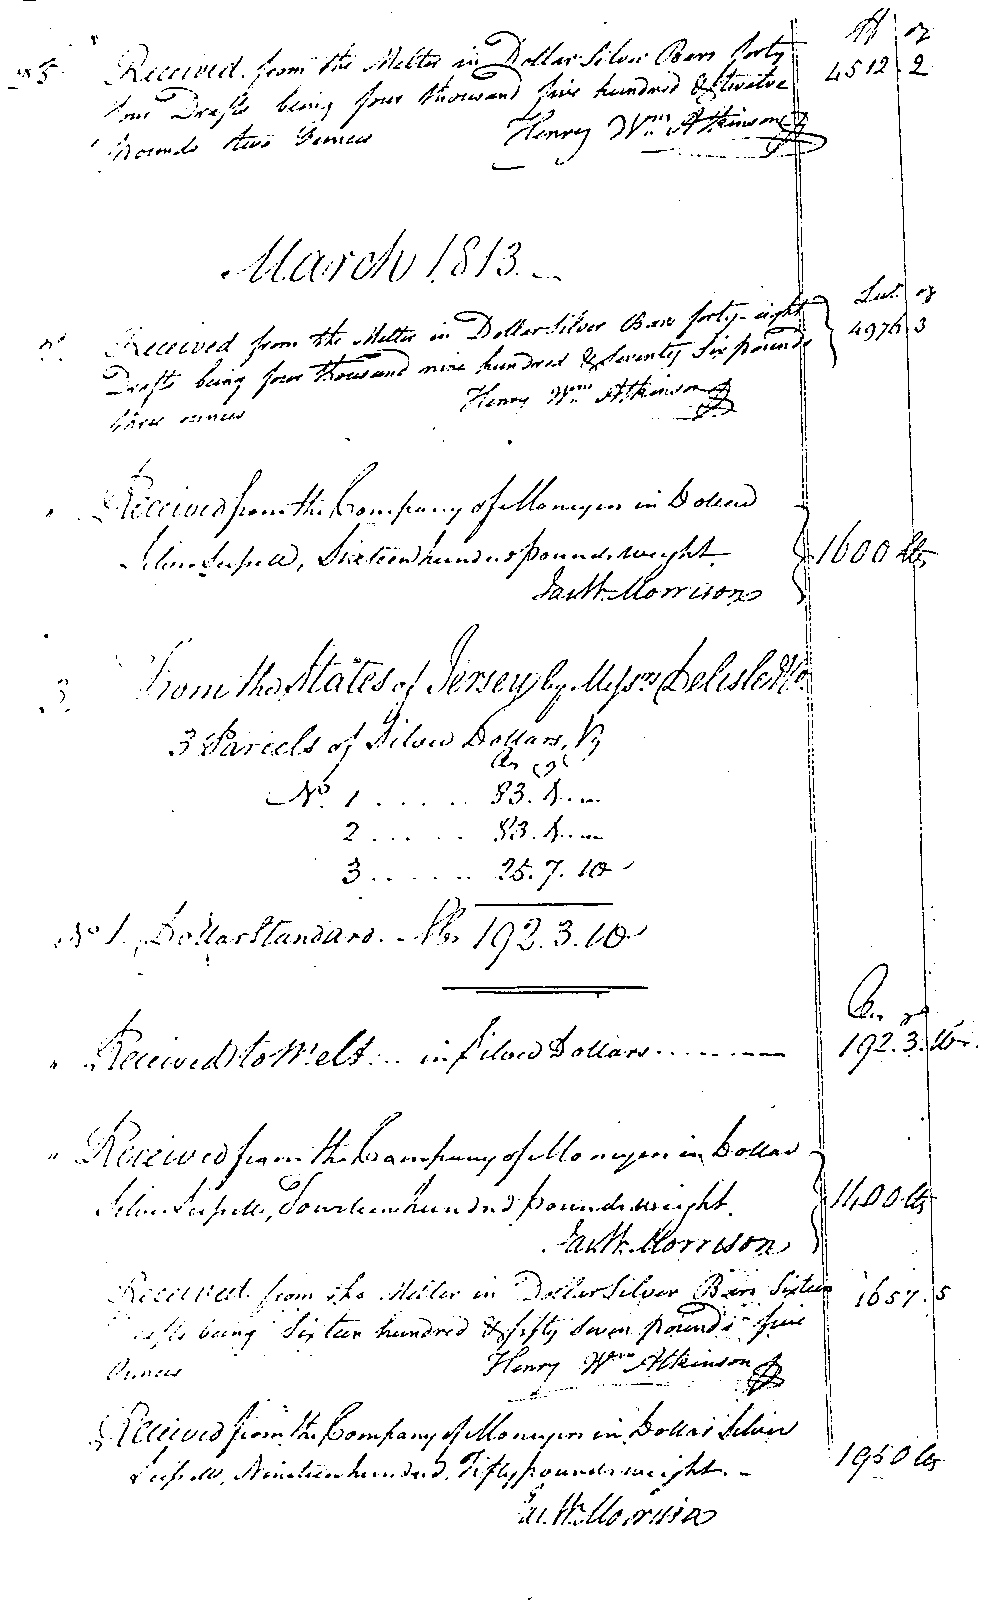 lb oz
25 Received from the Melter in Dollar Silver Bars forty 4512 . 2
four Drafts being four thousand five hundred & twelve
Pounds two Ounces Henry Wm Atkinson
March 1813.
lbs oz
Received from the Melter in Dollar Silver Bars forty-eight 4976 . 3
Drafts being four thousand nine hundred & seventy Six pounds
three ounces Henry Wm Atkinson
" Received from the Company of Moneyers in Dollar
Silver Scissell, Sixteen hundred pounds weight 1600 lbs
Jas. W. Morrison
3. From the States of Jersey by Messrs Delisle & Co.
3 Parcels of Silver Dollars, Vz
No. 1 ..... 83.
2 ..... 83.
3 ..... 25.7.10
No 1. Dollar Standard. lbs 192.3.10
" Received to Melt ... in Silver Dollars 192.3.10.
" Received from the Company of Moneyers in Dollar
Silver Scissell, Fourteen hundred pounds weight. 1400 lbs
Jas. W. Morrison
Received from the Melter in Dollar Silver Bars Sixteen 1657 . 5
Drafts being Sixteen hundred & fifty seven pounds five
Ounces Henry Wm Atkinson
Received from the Company of Moneyers in Dollar Silver
Scissell, Nineteen hundred, Fifty pounds weight. 1950 lbs
Jas. W. Morrison